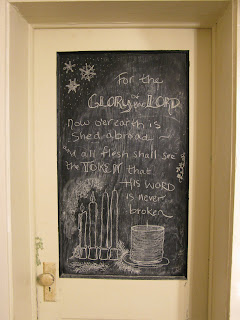 For the
GLORY of the LORD
now o'er earth is
shed abroad,
and all flesh shall see
the TOKEN that
HIS WORD
is never
broken